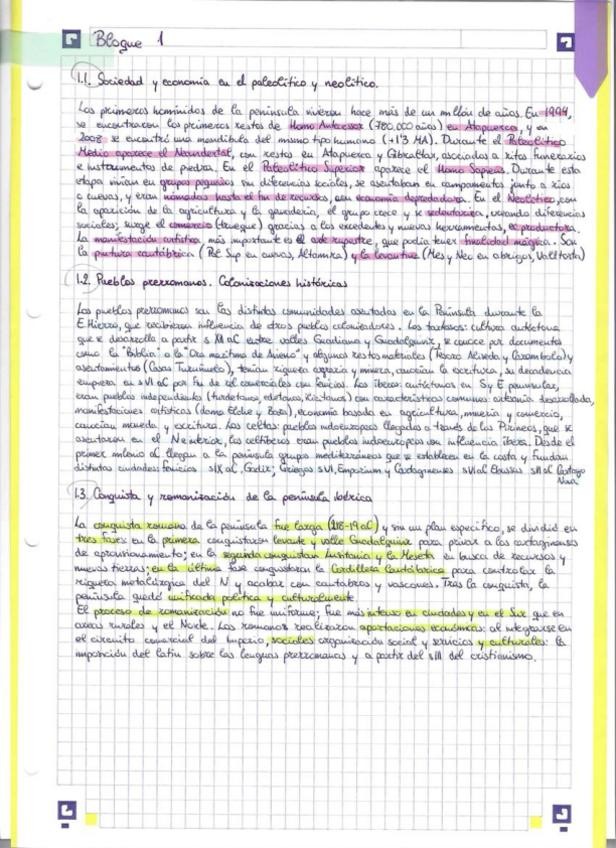 Bloque 1
1.1. Sociedad y economía en el paleolítico y neolítico.
Los primeros homínidos de la península vivieron hace más de un millón de años. En 1994,
se encontraron los primeros restos de Homo Antecessor (+780.000 años) en Atapuerca, y en
2008 se encontró una mandíbula del mismo tipo humano (+1'3 MA). Durante el Paleolítico
Medio aparece el Neandertal, con restos en Atapuerca y Gibraltar, asociados a ritos funerarios
e instrumentos de piedra. En el Paleolítico Superior aparece el Homo Sapiens. Durante esta
etapa vivían en grupos pequeños sin diferencias sociales, se asentaban en campamentos junto a ríos
o cuevas, y eran nómadas hasta el fin de recursos, con economía depredadora. En el Neolítico, con
la aparición de la agricultura y la ganadería, el grupo crece y se sedentariza, creando diferencias
sociales; surge el comercio (trueque) gracias a los excedentes y nuevas herramientas, es productora.
La manifestación artística más importante es el arte rupestre, que podía tener finalidad mágica. Son
la pintura cantábrica (Pal Sup en cuevas, Altamira) y la levantina (Mes y Neo en abrigos, Valltorta)
1.2. Pueblos prerromanos. Colonizaciones históricas
Los pueblos prerromanos son las distintas comunidades asentadas en la Península durante la
E.Hierro, que recibieron influencia de otros pueblos colonizadores. Los tartesos: cultura autóctona
que se desarrolla a partir s aC entre valles Guadiana y Guadalquivir, se conoce por documentos
como la "Biblia" o la "Ora marítima de Avieno" y algunos restos materiales (Tesoro Aliseda y Carambolo) y
asentamientos (Casas Turuñuelo), tenían riqueza agraria y minera, conocían la escritura, su decadencia
empieza en s VI aC por fin de rel comerciales con fenicios. Los íberos: autóctonos en S y E peninsular,
eran pueblos independientes (turdetanos, edetanos, ilicitanos) con características comunes: artesanía desarrollada,
manifestaciones artísticas (dama Elche y Baza), economía basada en agricultura, minería y comercio,
conocían moneda y escritura. Los celtas: pueblos indoeuropeos llegados a través de los Pirineos, que se
asentaron en el N e interior, los celtíberos eran pueblos indoeuropeos con influencia íbera. Desde el
primer milenio aC llegan a la península grupos mediterráneos que se establecen en la costa y fundan
distintas ciudades: fenicios sIX aC, Gadir; Griegos sVI, Emporium y Cartagineses sVI aC Ebussus sIII aC Cartago
Nova
1.3. Conquista y romanización de la península ibérica
La conquista romana de la península fue larga (218-19 aC) y sin un plan específico, se dividió en
tres fases: en la primera conquistaron levante y valle Guadalquivir para privar a los cartagineses
de aprovisionamiento; en la segunda conquistan Lusitania y la Meseta en busca de recursos y
nuevas tierras; en la última fase conquistaron la Cordillera Cantábrica para controlar la
riqueza metalúrgica del N y acabar con cántabros y vascones. Tras la conquista, la
península quedó unificada política y culturalmente.
El proceso de romanización no fue uniforme; fue más intenso en ciudades y en el Sur que en
áreas rurales y el Norte. Los romanos realizaron aportaciones económicas: al integrarse en
el circuito comercial del Imperio, sociales organización social y servicios y culturales: la
imposición del latín sobre las lenguas prerromanas y a partir del sIII del cristianismo.